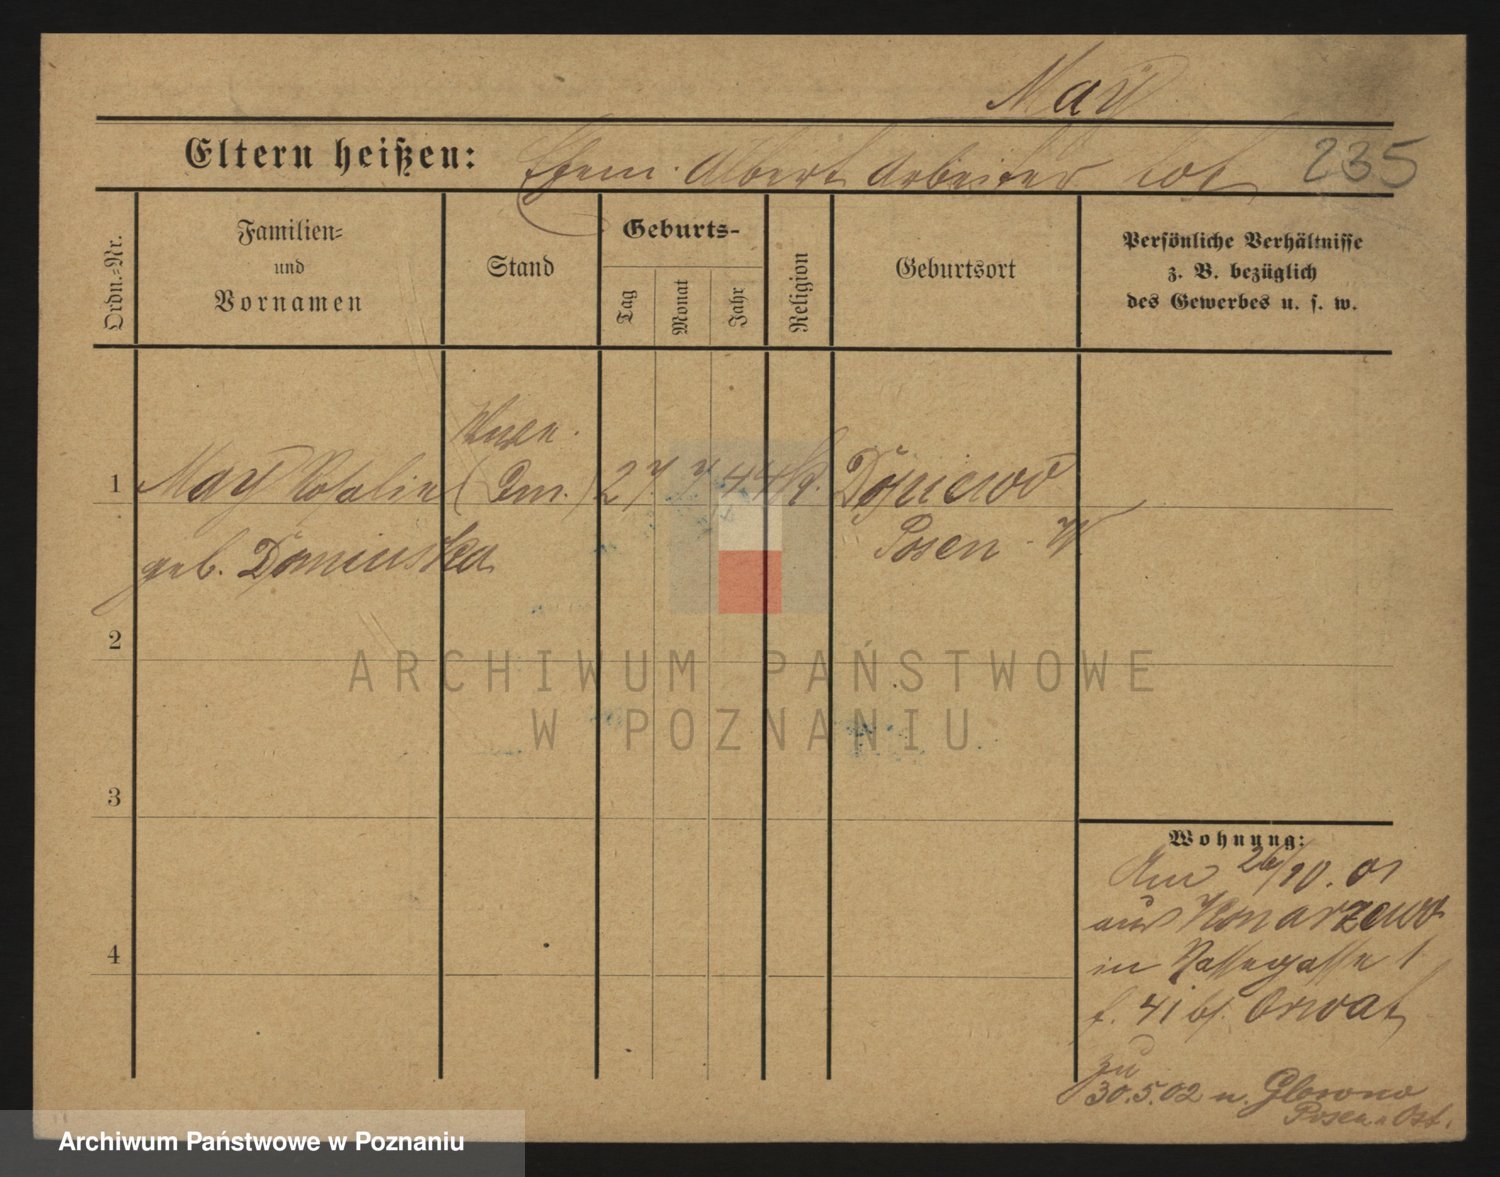 May
Eltern heißen: Ehem. Albert Arbeiter tot 235
Ordn.-Nr.
Familien- und Vornamen
Stand
Geburts-
Tag
Monat
Jahr
Religion
Geburtsort
Persönliche Verhältnisse
z. B. bezüglich
des Gewerbes u. s. w.
1 May Rosalie 27 7 44 Dopiewo
geb. Posen W
2
ARCHIWUM PAŃSTWOWE
W POZNANIU
3
4
Wohnung:
26/10.01
aus Konarzewo
in Wassergasse 1
b/. Orwat
zu
30.5.02 n. Glowno
Posen Ost.
Archiwum Państwowe w Poznaniu